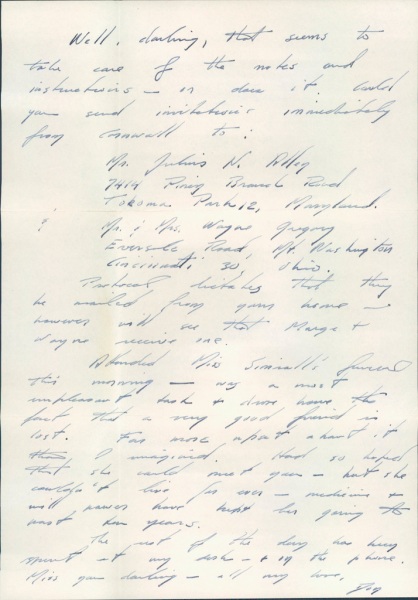 Well, darling, that seems to
take care of the notes and
instructions — or does it. Could
you send invitations immediately
from Cornwall to:
Mr. Julius N.
7414 Piney Branch Road
Takoma Park 12, Maryland.
Mr. & Mrs. Wayne Gregory
Eversole Road, Mt. Washington
Cincinnati 30, Ohio.
Protocol dictates that they
be mailed from your home —
however will see that Marge &
Wayne receive one.
Attended Miss funeral
this morning — was a most
unpleasant task & drove home the
fact that a very good friend is
lost. Far more upset about it
than I imagined. Had so hoped
that she could meet you — but she
couldn't live for ever — medicine &
will power have kept her going to
most ten years.
The rest of the day has been
spent at my desk — & on the phone.
Miss you darling — all my love,